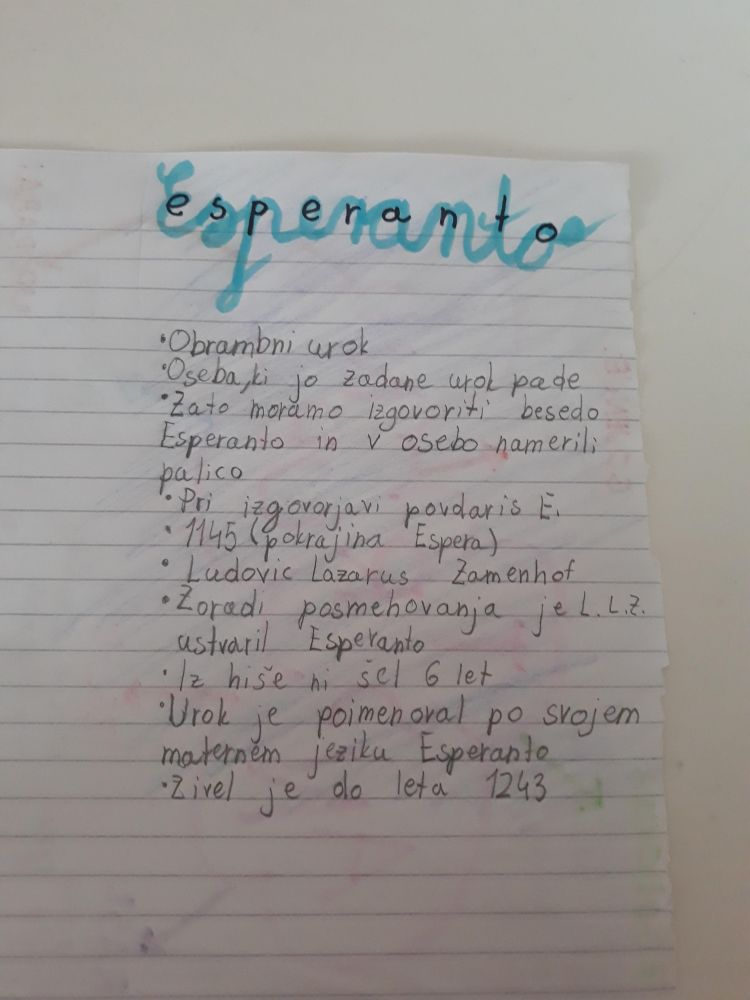 esperanto
•Obrambni urok
•Oseba,ki jo zadane urok pade
•Zato moramo izgovoriti besedo
Esperanto in v osebo namerili
palico
•Pri izgovorjavi povdaris E.
•1145 (pokrajina Espera)
•Ludovic Lazarus Zamenhof
•Zoradi posmehovanja je L.L.Z.
ustvaril Esperanto
•Iz hiše ni šel 6 let
•Urok je poimenoval po svojem
maternem jeziku Esperanto
•Zivel je do leta 1243